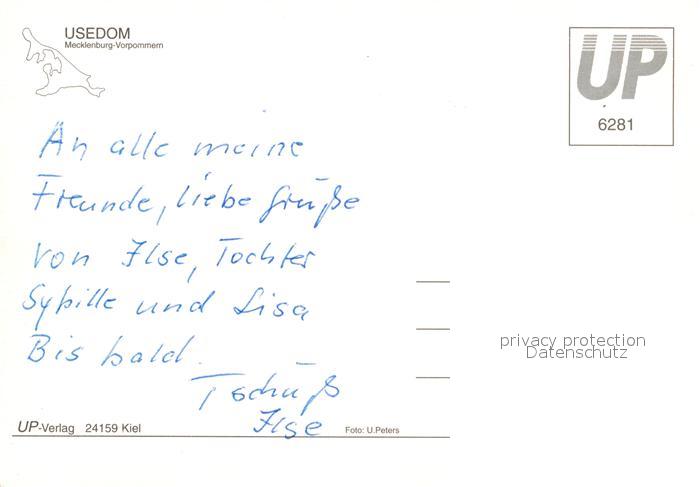 USEDOM
Mecklenburg-Vorpommern
UP
6281
An alle meine
Freunde, liebe Grüße
von Ilse, Tochter
Sybille und Lisa
Bis bald.
Tschüß
Ilse
privacy protection
Datenschutz
UP-Verlag 24159 Kiel
Foto: U.Peters